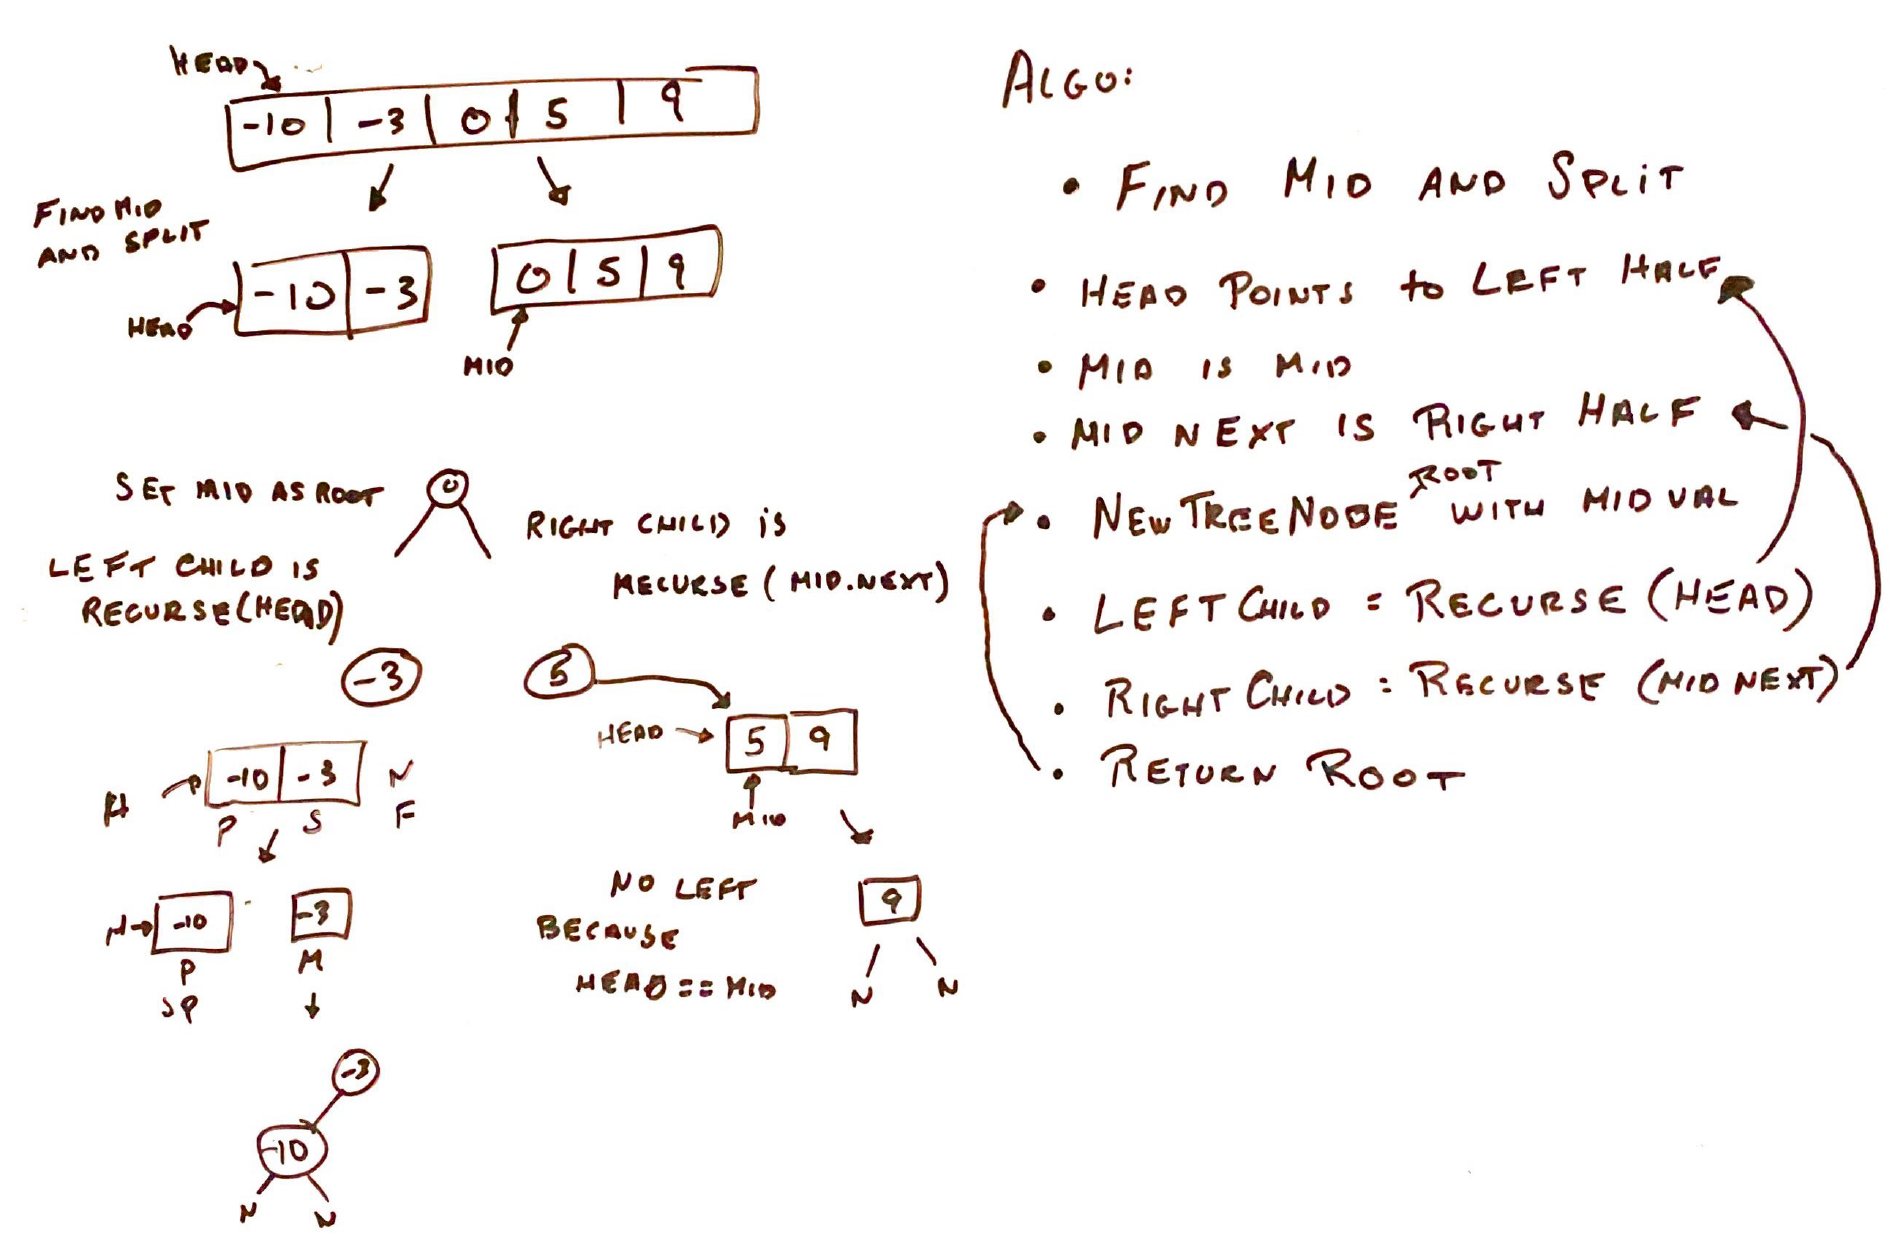 HEAD
-10 -3 0 5 9
FIND MID
AND SPLIT
-10 -3
0 5 9
HEAD
MID
SET MID AS ROOT
0
LEFT CHILD IS
RECURSE(HEAD)
RIGHT CHILD IS
RECURSE (MID.NEXT)
-3
5
H
-10 -3 N
P S F
HEAD
5 9
MID
H
-10
-3
P
M
NO LEFT
BECAUSE
HEAD == MID
9
N N
-3
-10
N N
ALGO:
• FIND MID AND SPLIT
• HEAD POINTS to LEFT HALF
• MID IS MID
• MID NEXT IS RIGHT HALF
ROOT
• NEW TREENODE WITH MID VAL
• LEFT CHILD = RECURSE (HEAD)
• RIGHT CHILD = RECURSE (MID NEXT)
• RETURN ROOT